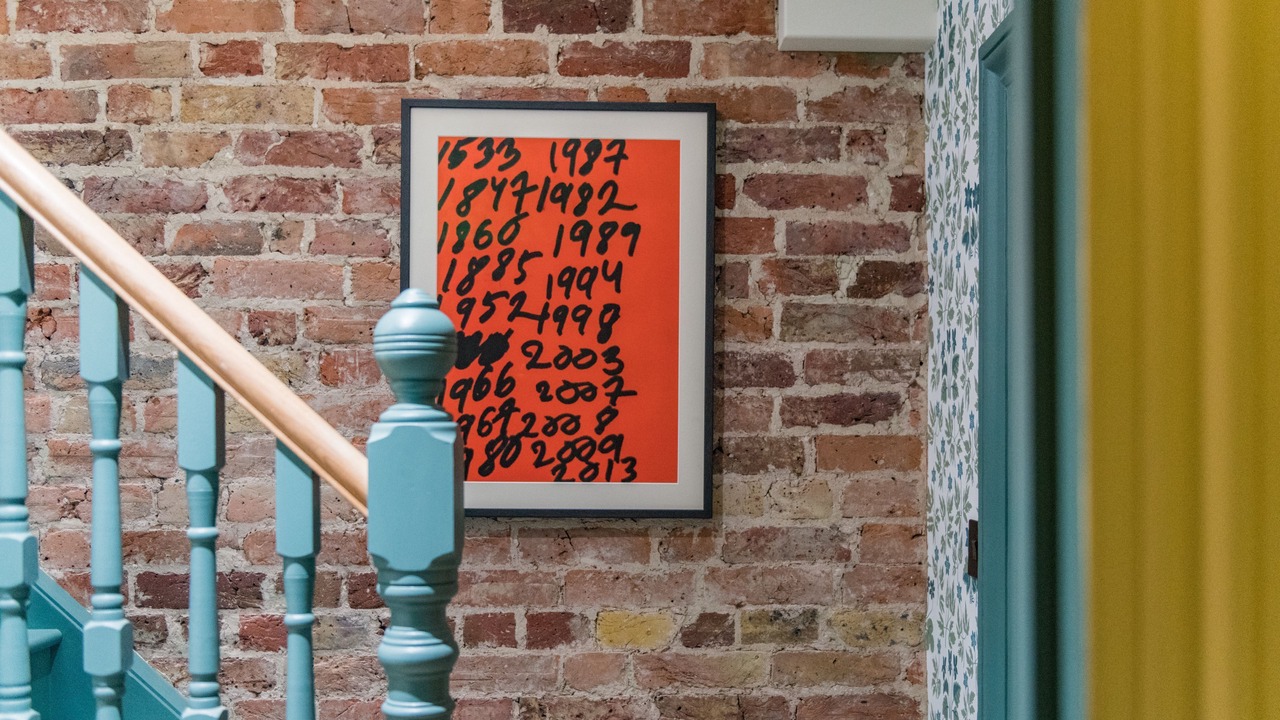 1533 1987
1847 1982
1860 1989
1885 1994
1952 1998
2003
1966 2007
1967 2008
1980 2009
2013